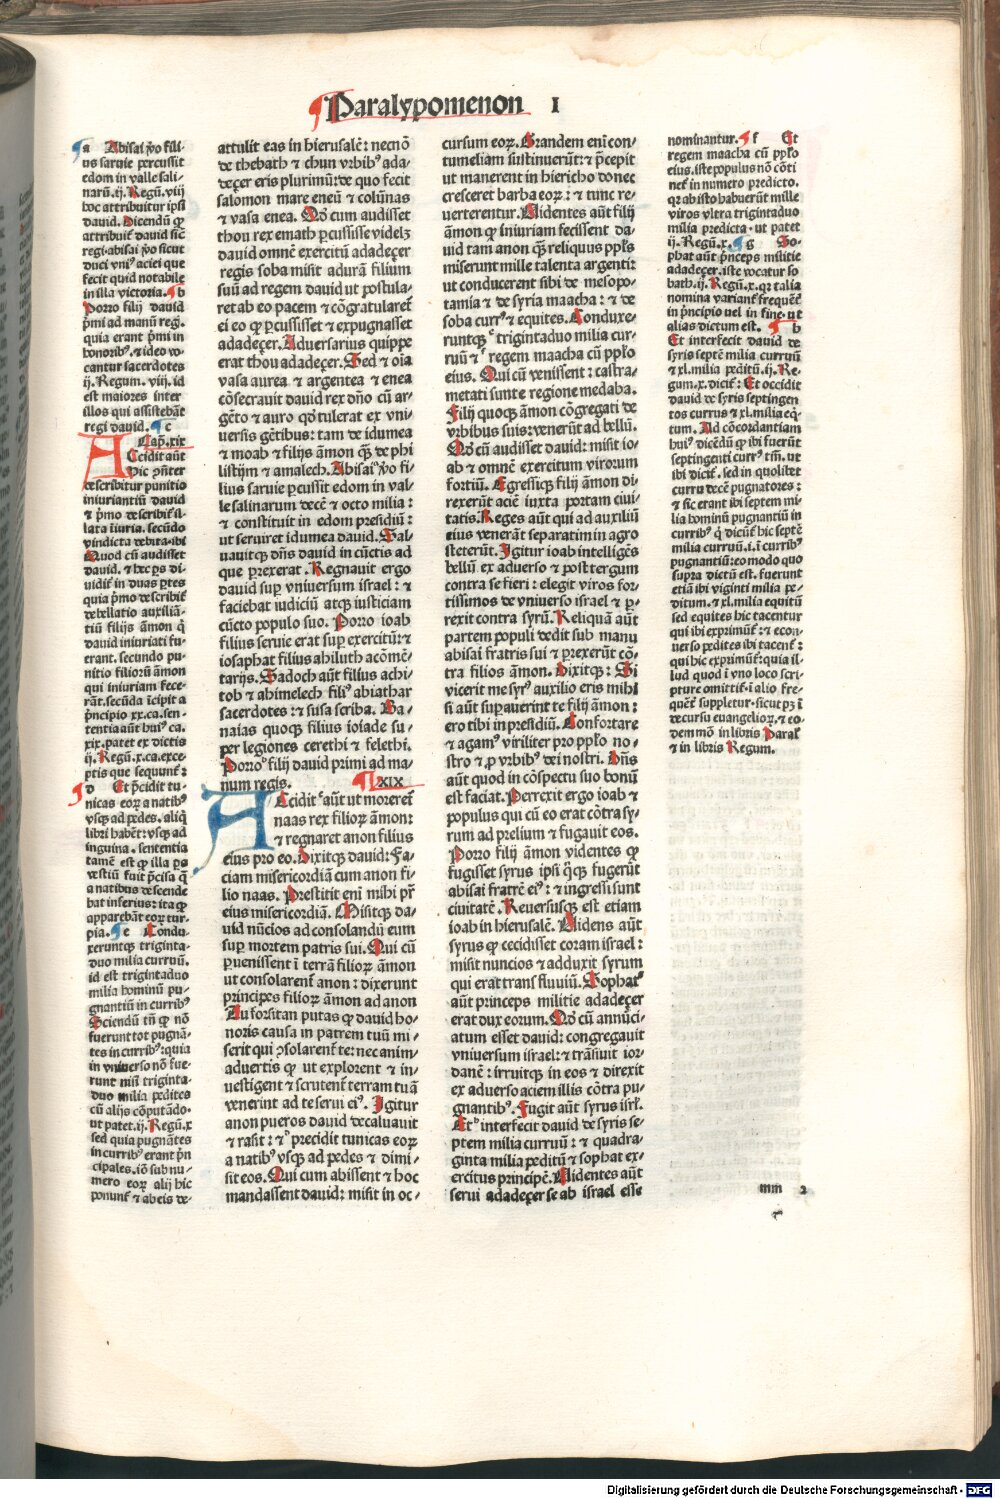 Paralypomenon I
a Abisai ꝟo fili-
us saruie percussit
edom in valle sali-
narū.ij. Regū.viij
hoc attribuitur ipsi
dauid. Dicendū ꝙ
attribuit dauid sic̄
regi.abisai ꝟo sicut
duci vniꝰ aciei que
fecit quid notabile
in illa victoria. b
Porro filij dauid
p̄mi ad manū regꝭ.
quia erant p̄mi in
honoribꝰ.⁊ ideo vo-
cantur sacerdotes
ij. Regum. viij. id
est maiores inter
illos qui assistebāt
regi dauid. c
Cap̄.xix
ACcidit aūt
Hic ꝯn̄ter
describitur punitio
iniuriantiū dauid
⁊ p̄mo describit il-
lata iiuria. secūdo
vindicta debita.ibi
Quod cū audisset
dauid. ⁊ hec ps di-
uidit in duas ptes
quia p̄mo describit
debellatio auxiliā-
tiū filijs āmon q̄
dauid iniuriati fu-
erant. secundo pu-
nitio filiorū āmon
qui iniuriam fece-
rāt.secūda īcipit a
p̄ncipio xx.ca.sen-
tentia aūt huiꝰ ca.
xix.patet ex dictis
ij. Regū.x.ca.exce-
ptis que sequunt:
d Et p̄cidit tu-
nicas eoꝝ a natibꝰ
vsqꝫ ad pedes. aliq̄
libri habēt: vsqꝫ ad
inguina. sententia
tamē est ꝙ illa ps
vestiū fuit p̄cisa q̄
a natibus descende
bat inferius: ita ꝙ
apparebāt eoꝝ tur-
pia. e Condu-
xeruntqꝫ triginta-
duo milia curruū.
id est trigintaduo
milia hominū pu-
gnantiū in curribꝰ
Sciendū tn̄ ꝙ nō
fuerunt tot pugnā-
tes in curribꝰ: quia
in vniuerso nō fue-
runt nisi triginta-
duo milia pedites
cū alijs cōputādo.
ut patet.ij. Regū.x
sed quia pugnātes
in curribꝰ erant p̄n
cipales. iō sub nu-
mero eoꝝ alij hic
ponunt ⁊ ab eis de-
attulit eas in hierusalē: necnō
de thebath ⁊ chun vrbibꝰ ada-
deçer eris plurimū: de quo fecit
salomon mare eneū ⁊ colūnas
⁊ vasa enea. Qḋ cum audisset
thou rex emath ꝑcussisse videlꝫ
dauid omnē exercitū adadeçer
regis soba misit adurā filium
suū ad regem dauid ut postula-
ret ab eo pacem ⁊ cōgratularet
ei eo ꝙ ꝑcussisset ⁊ expugnasset
adadeçer. Aduersarius quippe
erat thou adadeçer. Sed ⁊ oīa
vasa aurea ⁊ argentea ⁊ enea
cōsecrauit dauid rex dn̄o cū ar-
gēto ⁊ auro qḋ tulerat ex vni-
uersis gētibus: tam de idumea
⁊ moab ⁊ filijs āmon qꝫ de phi
listijm ⁊ amalech. Abisai ꝟo fi-
lius saruie ꝑcussit edom in val-
le salinarum decē ⁊ octo milia:
⁊ constituit in edom presidiū:
ut seruiret idumea dauid. Sal-
uauitqꝫ dn̄s dauid in cūctis ad
que ꝑrexerat. Regnauit ergo
dauid suꝑ vniuersum israel: ⁊
faciebat iudiciū atqꝫ iusticiam
cūcto populo suo. Porro ioab
filius seruie erat suꝑ exercitū: ⁊
iosaphat filius ahiluth acōmē-
tarijs. Sadoch aūt filius achi-
tob ⁊ abimelech filiꝰ abiathar
sacerdotes: ⁊ susa scriba. Ba-
naias quoqꝫ filius ioiade su-
per legiones cerethi ⁊ felethi.
Porro filij dauid primi ad ma-
num regis. XIX
ACcidit aūt ut moreret
naas rex filioꝝ āmon:
⁊ regnaret anon filius
eius pro eo. Dixitqꝫ dauid: Fa-
ciam misericordiā cum anon fi-
lio naas. Prestitit enī mihi pr̄
eius misericordiā. Misitqꝫ da-
uid nūcios ad consolandū eum
suꝑ mortem patris sui. Qui cū
ꝑuenissent ī terrā filioꝝ āmon
ut consolarent anon: dixerunt
principes filioꝝ āmon ad anon
Tu forsitan putas ꝙ dauid ho-
noris causa in patrem tuū mi-
serit qui ꝯsolarent te: nec anim
aduertis ꝙ ut explorent ⁊ in-
uestigent ⁊ scrutent terram tuā
venerint ad te serui eiꝰ. Igitur
anon pueros dauid decaluauit
⁊ rasit: ⁊ precidit tunicas eoꝝ
a natibꝰ vsqꝫ ad pedes ⁊ dimi-
sit eos. Qui cum abissent ⁊ hoc
mandassent dauid: misit in oc-
cursum eoꝝ. Grandem enī con-
tumeliam sustinuerūt: ⁊ p̄cepit
ut manerent in hiericho donec
cresceret barba eoꝝ: ⁊ tunc re-
uerterentur. Uidentes aūt filij
āmon ꝙ iniuriam fecissent da-
uid tam anon qꝫ reliquus ppls
miserunt mille talenta argenti:
ut conducerent sibi de mesopo-
tamia ⁊ de syria maacha: ⁊ de
soba currꝰ ⁊ equites. Conduxe-
runtqꝫ trigintaduo milia cur-
ruū ⁊ regem maacha cū pplo
eius. Qui cū venissent: castra-
metati sunt e regione medaba.
Filij quoqꝫ āmon cōgregati de
vrbibus suis: venerūt ad bellū.
Qḋ cū audisset dauid: misit io-
ab ⁊ omnē exercitum virorum
fortiū. Egressiqꝫ filij āmon di-
rexerūt aciē iuxta portam ciui-
tatis. Reges aūt qui ad auxiliū
eius venerāt separatim in agro
steterūt. Igitur ioab intelligēs
bellū ex aduerso ⁊ post tergum
contra se fieri: elegit viros for-
tissimos de vniuerso israel ⁊ ꝑ-
rexit contra syrū. Reliquā aūt
partem populi dedit sub manu
abisai fratris sui ⁊ ꝑrexerūt cō-
tra filios āmon. Dixitqꝫ: Si
vicerit me syrꝰ auxilio eris mihi
si aūt suꝑauerint te filij āmon:
ero tibi in presidiū. Confortare
⁊ agamꝰ viriliter pro pplo no-
stro ⁊ ꝓ vrbibꝰ dei nostri. Dn̄s
aūt quod in cōspectu suo bonū
est faciat. Perrexit ergo ioab ⁊
populus qui cū eo erat cōtra sy-
rum ad prelium ⁊ fugauit eos.
Porro filij āmon videntes ꝙ
fugisset syrus ipsi q̄qꝫ fugerūt
abisai fratrē eiꝰ: ⁊ ingressi sunt
ciuitatē. Reuersusqꝫ est etiam
ioab in hierusalē. Uidens aūt
syrus ꝙ cecidisset coram israel:
misit nuncios ⁊ adduxit syrum
qui erat trans fluuiū. Sophat
aūt princeps militie adadeçer
erat dux eorum. Qḋ cū annūci-
atum esset dauid: congregauit
vniuersum israel: ⁊ trāsiuit ior-
danē: irruitqꝫ in eos ⁊ direxit
ex aduerso aciem illis cōtra pu-
gnantibꝰ. Fugit aūt syrus isrl.
Et interfecit dauid de syris se-
ptem milia curruū: ⁊ quadra-
ginta milia peditū ⁊ sophat ex-
ercitus principē. Uidentes aūt
serui adadeçer se ab israel esse
nominantur. f Et
regem maacha cū pplo
eius. iste populus nō cōti
net in numero predicto.
qꝛ ab isto habuerūt mille
viros vltra trigintaduo
milia predicta. ut patet
ij. Regū.x. g So-
phat aūt p̄nceps militie
adadeçer. iste vocatur so
bath.ij. Regū.x.qꝛ talia
nomina variant frequēt
in p̄ncipio uel in fine.ut
alias dictum est. h
Et interfecit dauid de
syris septē milia curruū
⁊ xl.milia peditū.ij. Re-
gum.x. dicit: Et occidit
dauid de syris septingen
tos currus ⁊ xl.milia eq̄-
tum. Ad cōcordantiam
huiꝰ dicēdū ꝙ ibi fuerūt
septingenti currꝰ tm̄. ut
ibi dicit. sed in quolibet
curru decē pugnatores:
⁊ sic erant ibi septem mi-
lia hominū pugnantiū in
curribꝰ q̄ dicūt hic septē
milia curruū.i.ī curribꝰ
pugnantiū: eo modo quo
supra dictū est. fuerunt
etiā ibi viginti milia pe-
ditum.⁊ xl.milia equitū
sed equites hic tacentur
qui ibi exprimūt: ⁊ econ-
uerso pedites ibi tacent:
qui hic exprimūt: quia il-
lud quod ī vno loco scri-
pture omittit.ī alio fre-
quēt suppletur. sicut pꝫ ī
decursu euangelioꝝ.⁊ eo-
dem mō in libris Paral
⁊ in libris Regum.
mm 2
Digitalisierung gefördert durch die Deutsche Forschungsgemeinschaft - DFG